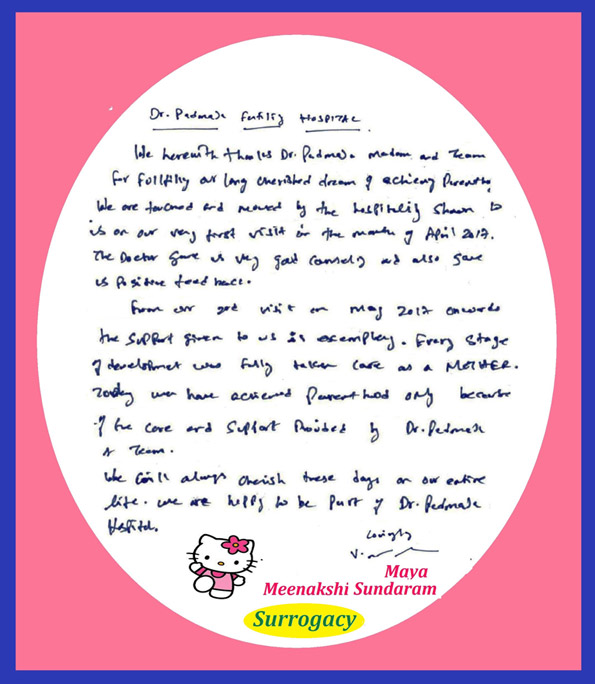 Dr. Padmaja Fertility HOSPITAL
We herewith thanks Dr. Padmaja Madam and Team
for fulfilling our long cherished dream of achieving Parenthood.
We are touched and moved by the hospitality shown to
us on our very first visit in the month of April 2017.
The Doctor gave us very good counseling and also gave
us positive feed back.
From our 2nd visit on May 2017 onwards
the support given to us is exemplary. Every stage
of development was fully taken care as a MOTHER.
Today we have achieved Parenthood only because
of the care and support Provided by Dr. Padmaja
& Team.
We will always cherish these days on our entire
life. We are happy to be part of Dr. Padmaja
Hospital.
Lovingly
Maya
Meenakshi Sundaram
Surrogacy